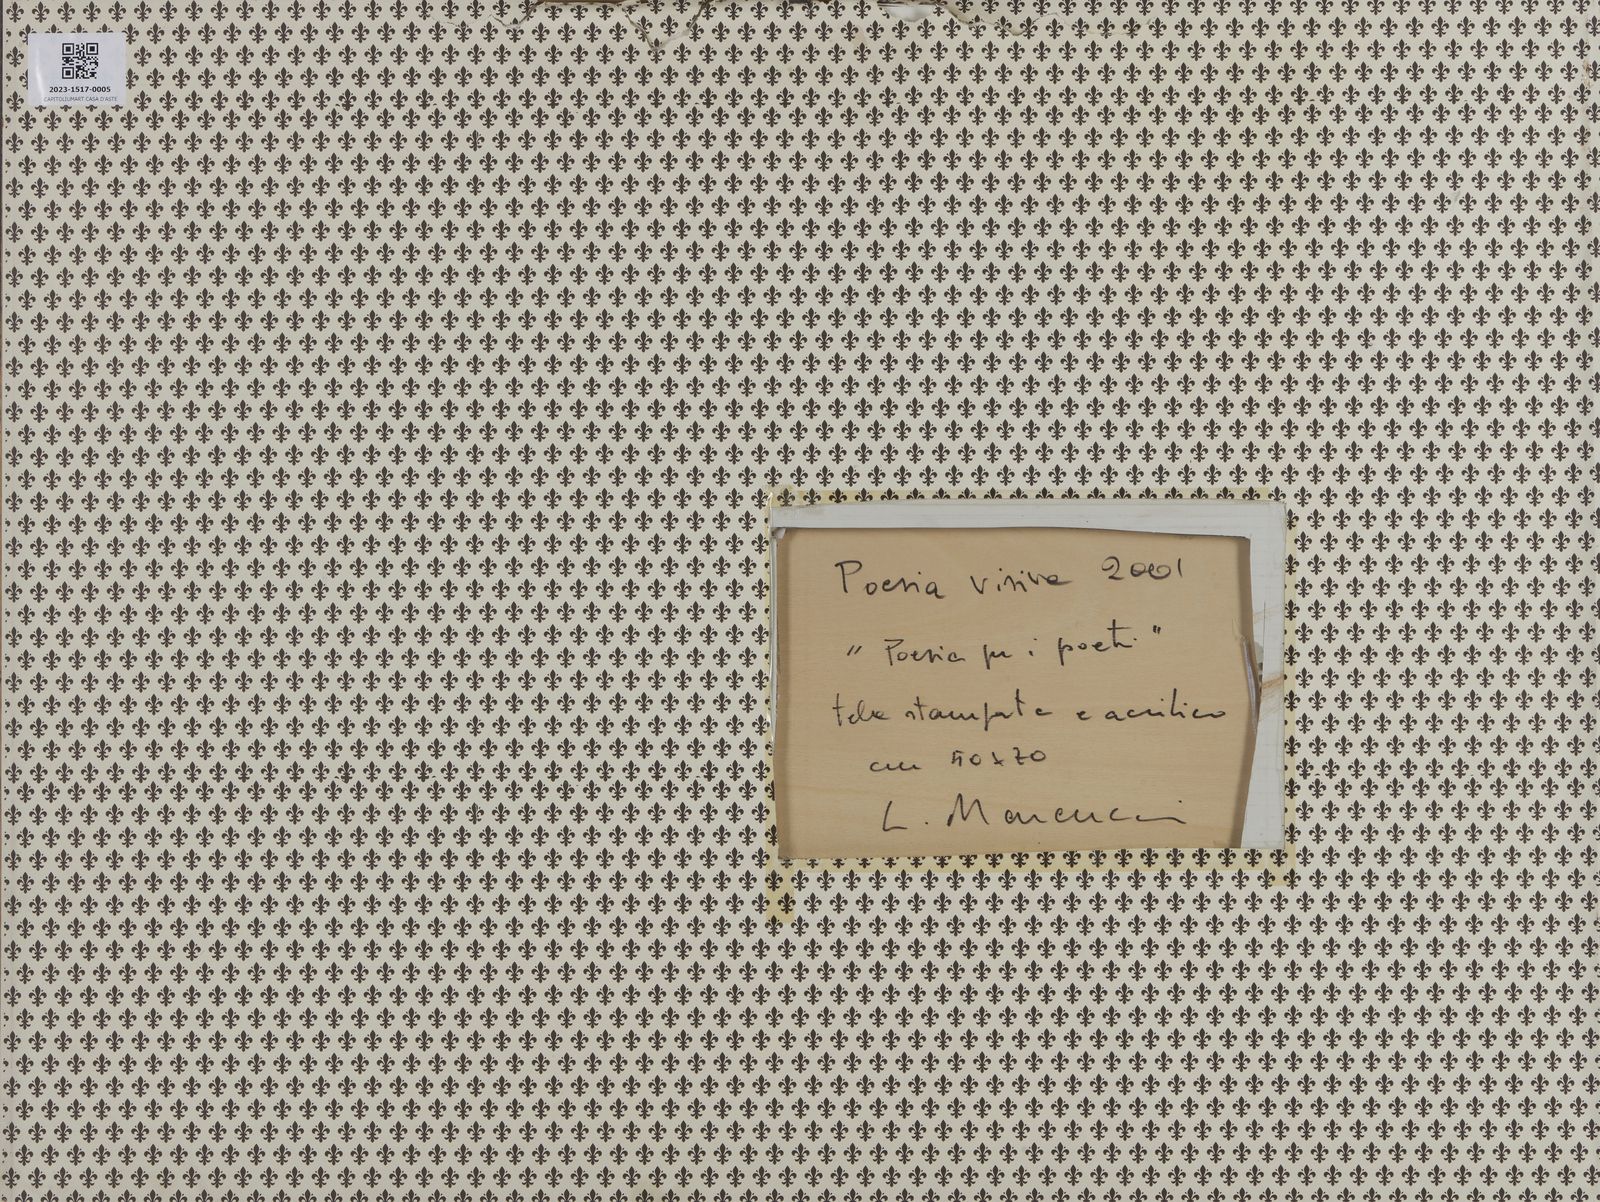 2023-1517-0005
CAPITOLIUMART CASA D'ASTE
Poesia visiva 2001
"Poesia per i poeti"
tela stampata e acrilico
cm 50x70
L. Marcucci